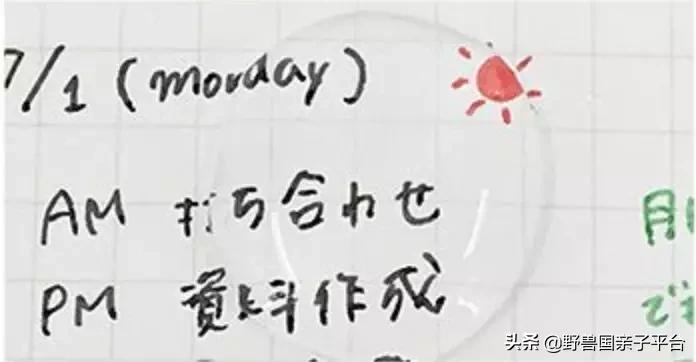 7/1 (monday)
AM 打ち合わせ
PM 資料作成
头条 @野兽国亲子平台